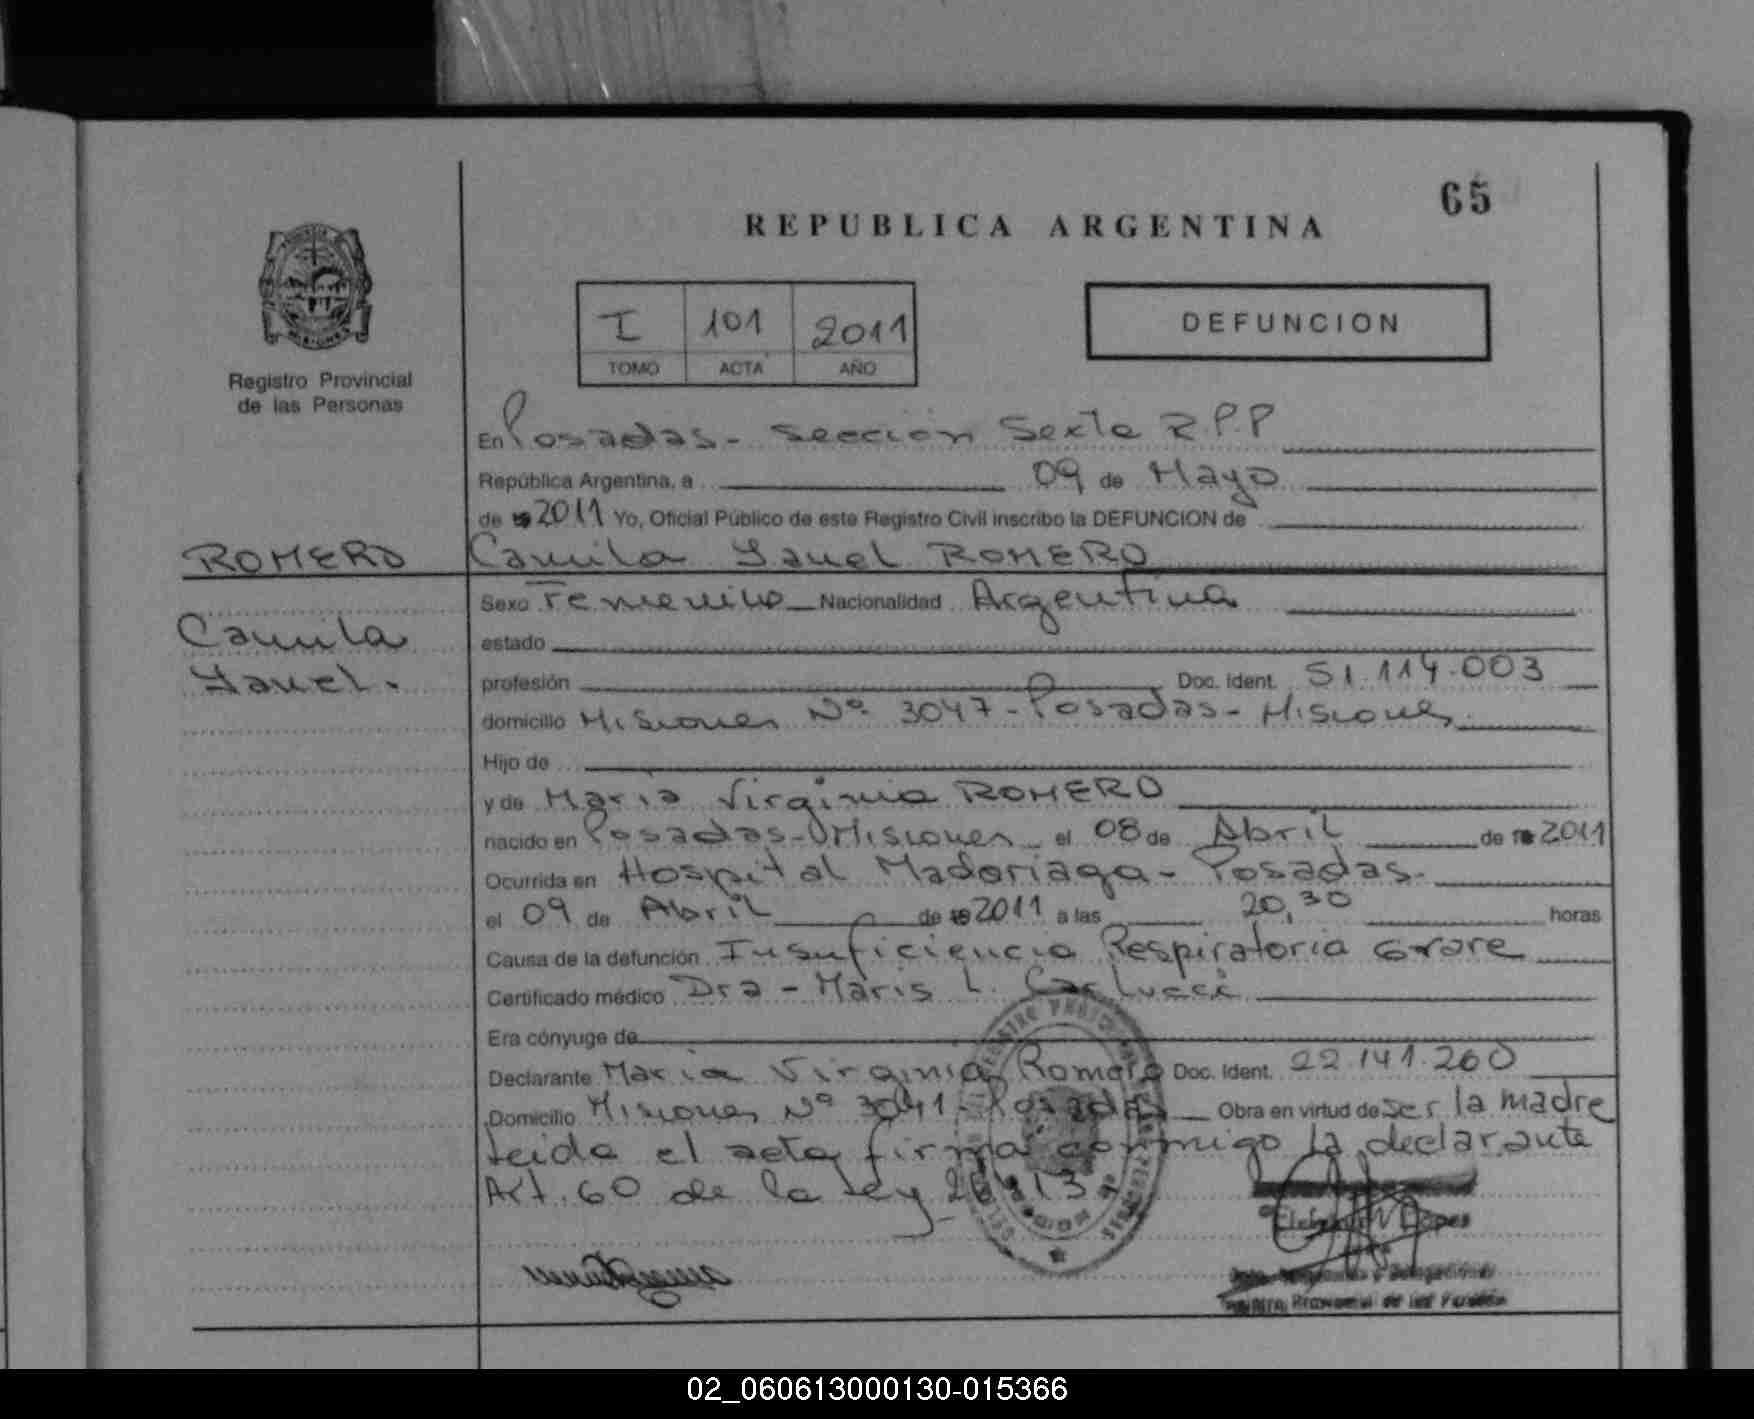 65
REPUBLICA ARGENTINA
I 101 2011
TOMO ACTA AÑO
DEFUNCION
Registro Provincial
de las Personas
En Posadas - Sección Sexta R.P.P
República Argentina, a 09 de Mayo
de 2011 Yo, Oficial Público de este Registro Civil inscribo la DEFUNCION de
ROMERO Camila Yanel ROMERO
Sexo Femenino Nacionalidad Argentina
Camila
estado
Yanel.
profesión Doc. Ident. 51.114.003
domicilio Misiones Nº 3047 - Posadas - Misiones
Hijo de
y de Maria Virginia ROMERO
nacido en Posadas - Misiones el 08 de Abril de 2011
Ocurrida en Hospital Madariaga - Posadas.
el 09 de Abril de 2011 a las 20,30 horas
Causa de la defunción Insuficiencia Respiratoria Grave
Certificado médico Dra - Maris L. Carlucci
Era cónyuge de
Declarante Maria Virginia Romero Doc. Ident. 22.141.260
Domicilio Misiones Nº 3041 - Posadas Obra en virtud de ser la madre
Leida el acta firma conmigo la declarante
Art. 60 de la Ley
Registro Provincial de las Personas
02_060613000130-015366